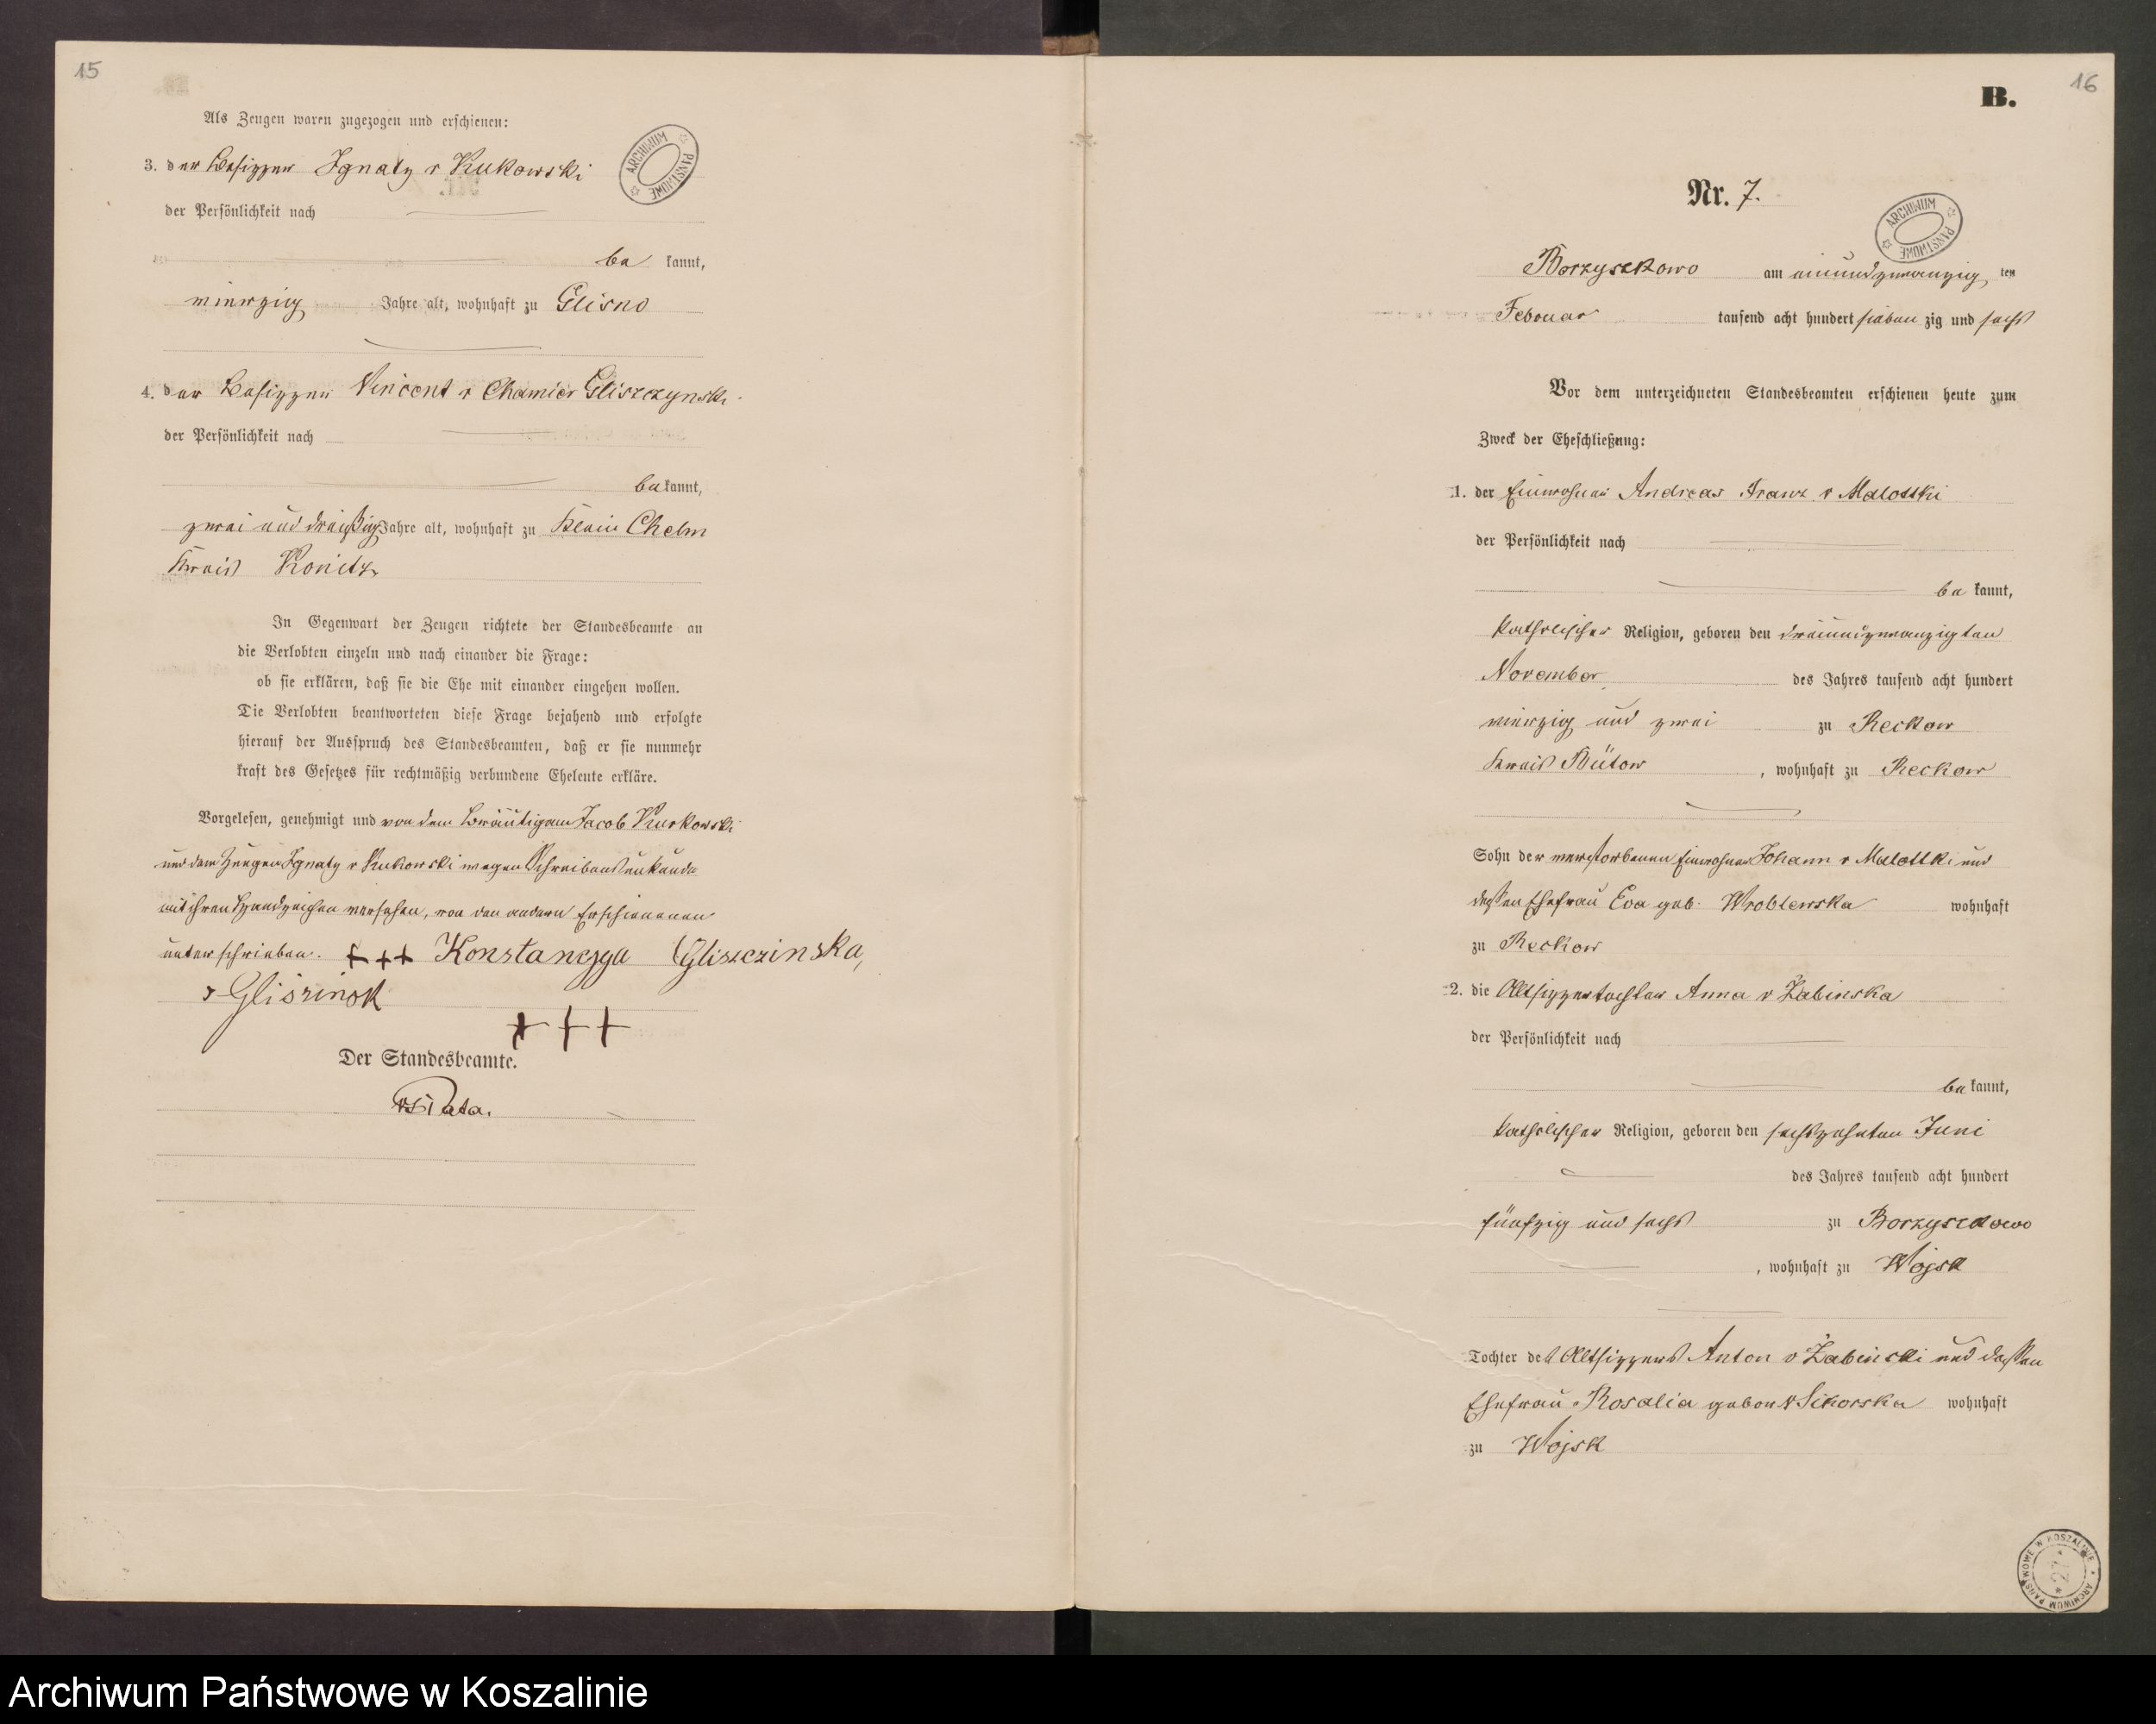 15
Als Zeugen waren zugezogen und erschienen:
3. der Besitzer Ignatz v Kukowski
der Persönlichkeit nach
be kannt,
vierzig Jahre alt, wohnhaft zu Glisno
4. der Besitzer Vincent v Chamier Gliszczynski
der Persönlichkeit nach
be kannt,
zwei und dreißig Jahre alt, wohnhaft zu Klein Chelm
Kreis Konitz
In Gegenwart der Zeugen richtete der Standesbeamte an
die Verlobten einzeln und nach einander die Frage:
ob sie erklären, daß sie die Ehe mit einander eingehen wollen.
Die Verlobten beantworteten diese Frage bejahend und erfolgte
hierauf der Ausspruch des Standesbeamten, daß er sie nunmehr
kraft des Gesetzes für rechtmäßig verbundene Eheleute erkläre.
Vorgelesen, genehmigt und von dem Bräutigam Jacob Kurkowski
und dem Zeugen Ignatz v Kukowski wegen Schreibensunkunde
mit ihren Handzeichen versehen, von den andern Erschienenen
unterschrieben. +++ Konstancyya Gliszczinska,
v Glisrinsk
+++
Der Standesbeamte.
ARCHIWUM PAŃSTWOWE
16
B.
Nr. 7.
ARCHIWUM PAŃSTWOWE
Borzyszkowo am einundzwanzig ten
Februar tausend acht hundert sieben zig und sechs
Vor dem unterzeichneten Standesbeamten erschienen heute zum
Zweck der Eheschließung:
1. der Einwohner Andreas Franz v Malottki
der Persönlichkeit nach
be kannt,
katholischer Religion, geboren den dreiundzwanzigten
November des Jahres tausend acht hundert
vierzig und zwei zu Reckow
Kreis Bütow , wohnhaft zu Reckow
Sohn der verstorbenen Einwohner Johann v Malottki und
dessen Ehefrau Eva geb. Wroblewska wohnhaft
zu Reckow
2. die Altsitzertochter Anna v Żabinska
der Persönlichkeit nach
be kannt,
katholischer Religion, geboren den sechszehnten Juni
des Jahres tausend acht hundert
fünfzig und sechs zu Borzyszkowo
, wohnhaft zu Wojsk
Tochter des Altsitzers Anton v Żabinski und dessen
Ehefrau Rosalia geborn v Sikorska wohnhaft
zu Wojsk
ARCHIWUM PAŃSTWOWE W KOSZALINIE * 27 *
Archiwum Państwowe w Koszalinie